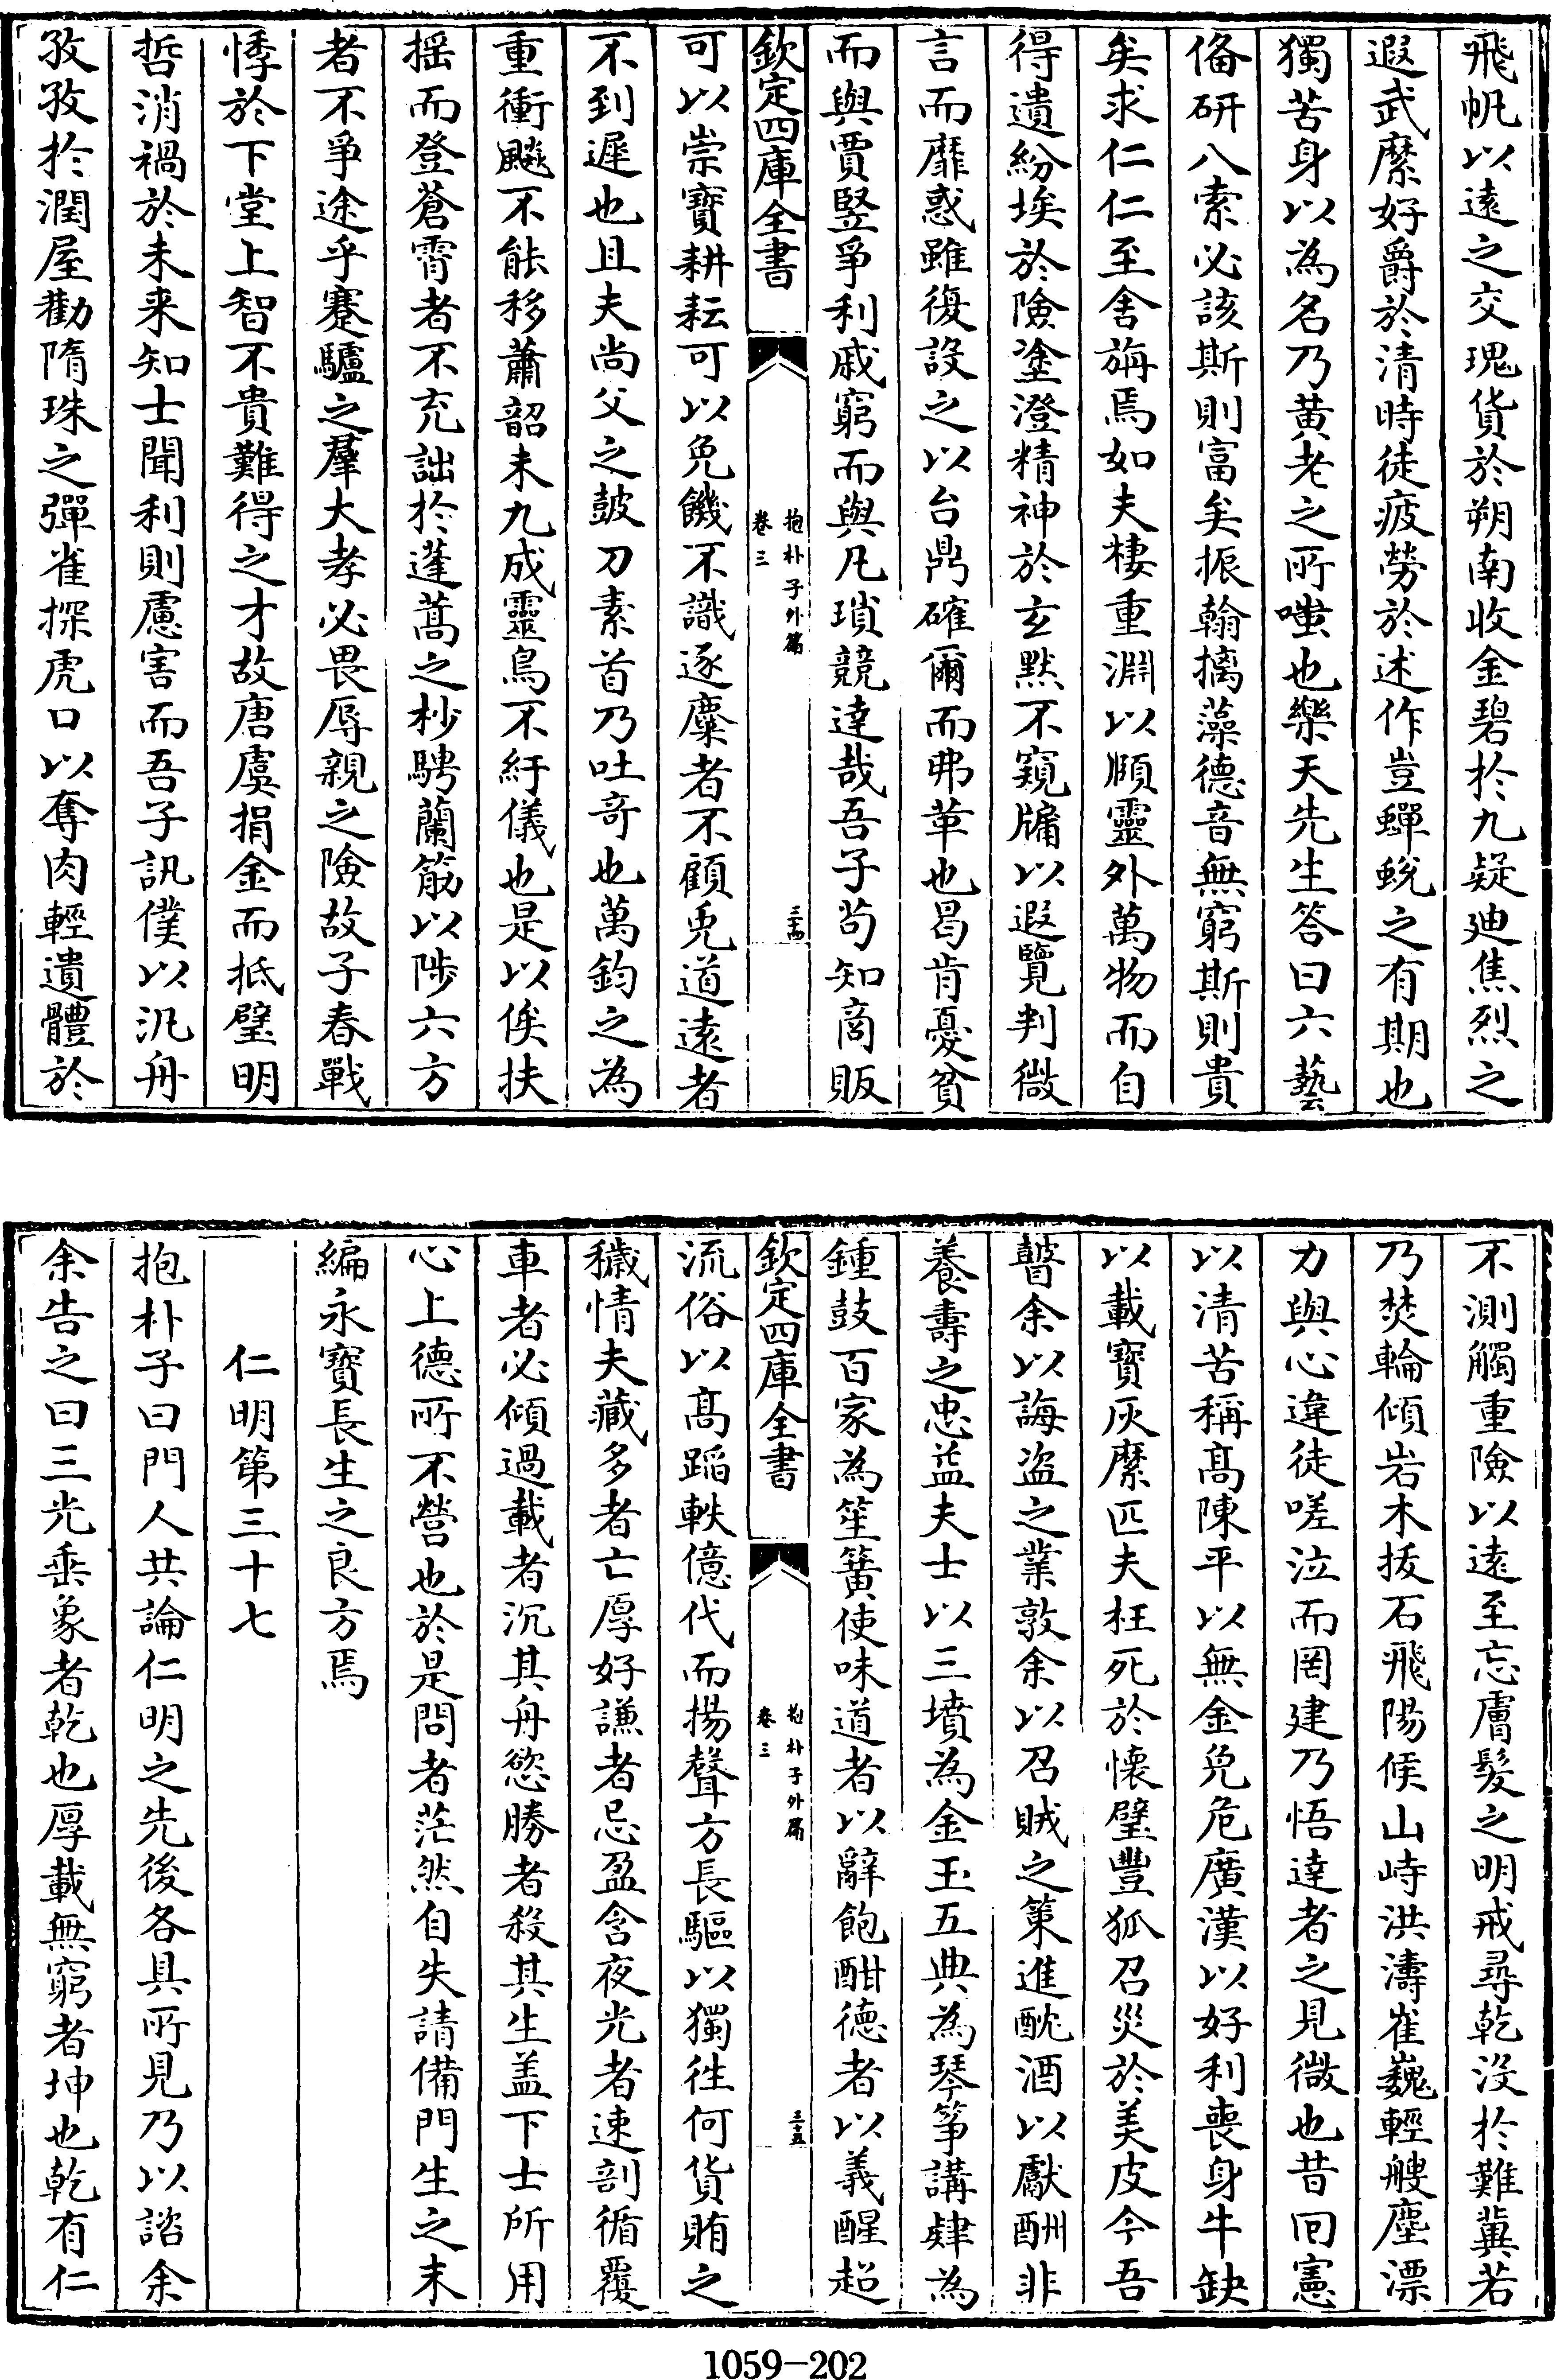 飛帆以遠之交瑰貨於朔南收金碧於九疑廸焦烈之
遐武縻好爵於清時徒疲勞於述作豈蟬蛻之有期也
獨苦身以為名乃黄老之所嗤也樂天先生答曰六藝
俻研八索必該斯則富矣振翰摛藻德音無窮斯則貴
矣求仁仁至舍旃焉如夫棲重淵以頤靈外萬物而自
得遺紛埃於險塗澄精神於玄默不窺牖以遐覽判微
言而靡惑雖復設之以台鼎確爾而弗革也曷肯憂貧
而與賈豎爭利戚窮而與凡瑣競達哉吾子茍知商販
欽定四庫全書
抱朴子外篇
卷三
三十四
可以崇寶耕耘可以免饑不識逐麋者不顧兎道遠者
不到遲也且夫尚父之鼓刀素首乃吐奇也萬鈞之為
重衝飈不能移蕭韶未九成靈鳥不紆儀也是以俟扶
揺而登蒼霄者不充詘於蓬蒿之杪騁蘭筋以陟六方
者不爭途乎蹇驢之羣大孝必畏辱親之險故子春戰
悸於下堂上智不貴難得之才故唐虞捐金而抵璧明
哲消禍於未来知士聞利則慮害而吾子訊僕以汎舟
孜孜於潤屋勸隋珠之彈雀探虎口以奪肉輕遺體於
不測觸重險以遠至忘膚髮之明戒尋乾没於難冀若
乃焚輪傾岩木拔石飛陽侯山峙洪濤崔巍輕艘塵漂
力與心違徒嗟泣而罔建乃悟達者之見微也昔回憲
以清苦稱髙陳平以無金免危廣漢以好利喪身牛缺
以載寳灰縻匹夫枉死於懷璧豐狐召災於美皮今吾
瞽余以誨盗之業敦余以召賊之策進酖酒以獻酬非
養壽之忠益夫士以三墳為金玉五典為琴箏講肄為
鍾鼓百家為笙簧使味道者以辭飽酣德者以義醒超
欽定四庫全書
抱朴子外篇
卷三
三十五
流俗以髙蹈軼億代而揚聲方長驅以獨徃何貨賄之
穢情夫藏多者亡厚好謙者忌盈含夜光者速剖循覆
車者必傾過載者沉其舟慾勝者殺其生盖下士所用
心上德所不營也於是問者茫然自失請備門生之末
編永寳長生之良方焉
仁明第三十七
抱朴子曰門人共論仁明之先後各具所見乃以諮余
余告之曰三光垂象者乾也厚載無窮者坤也乾有仁
1059-202